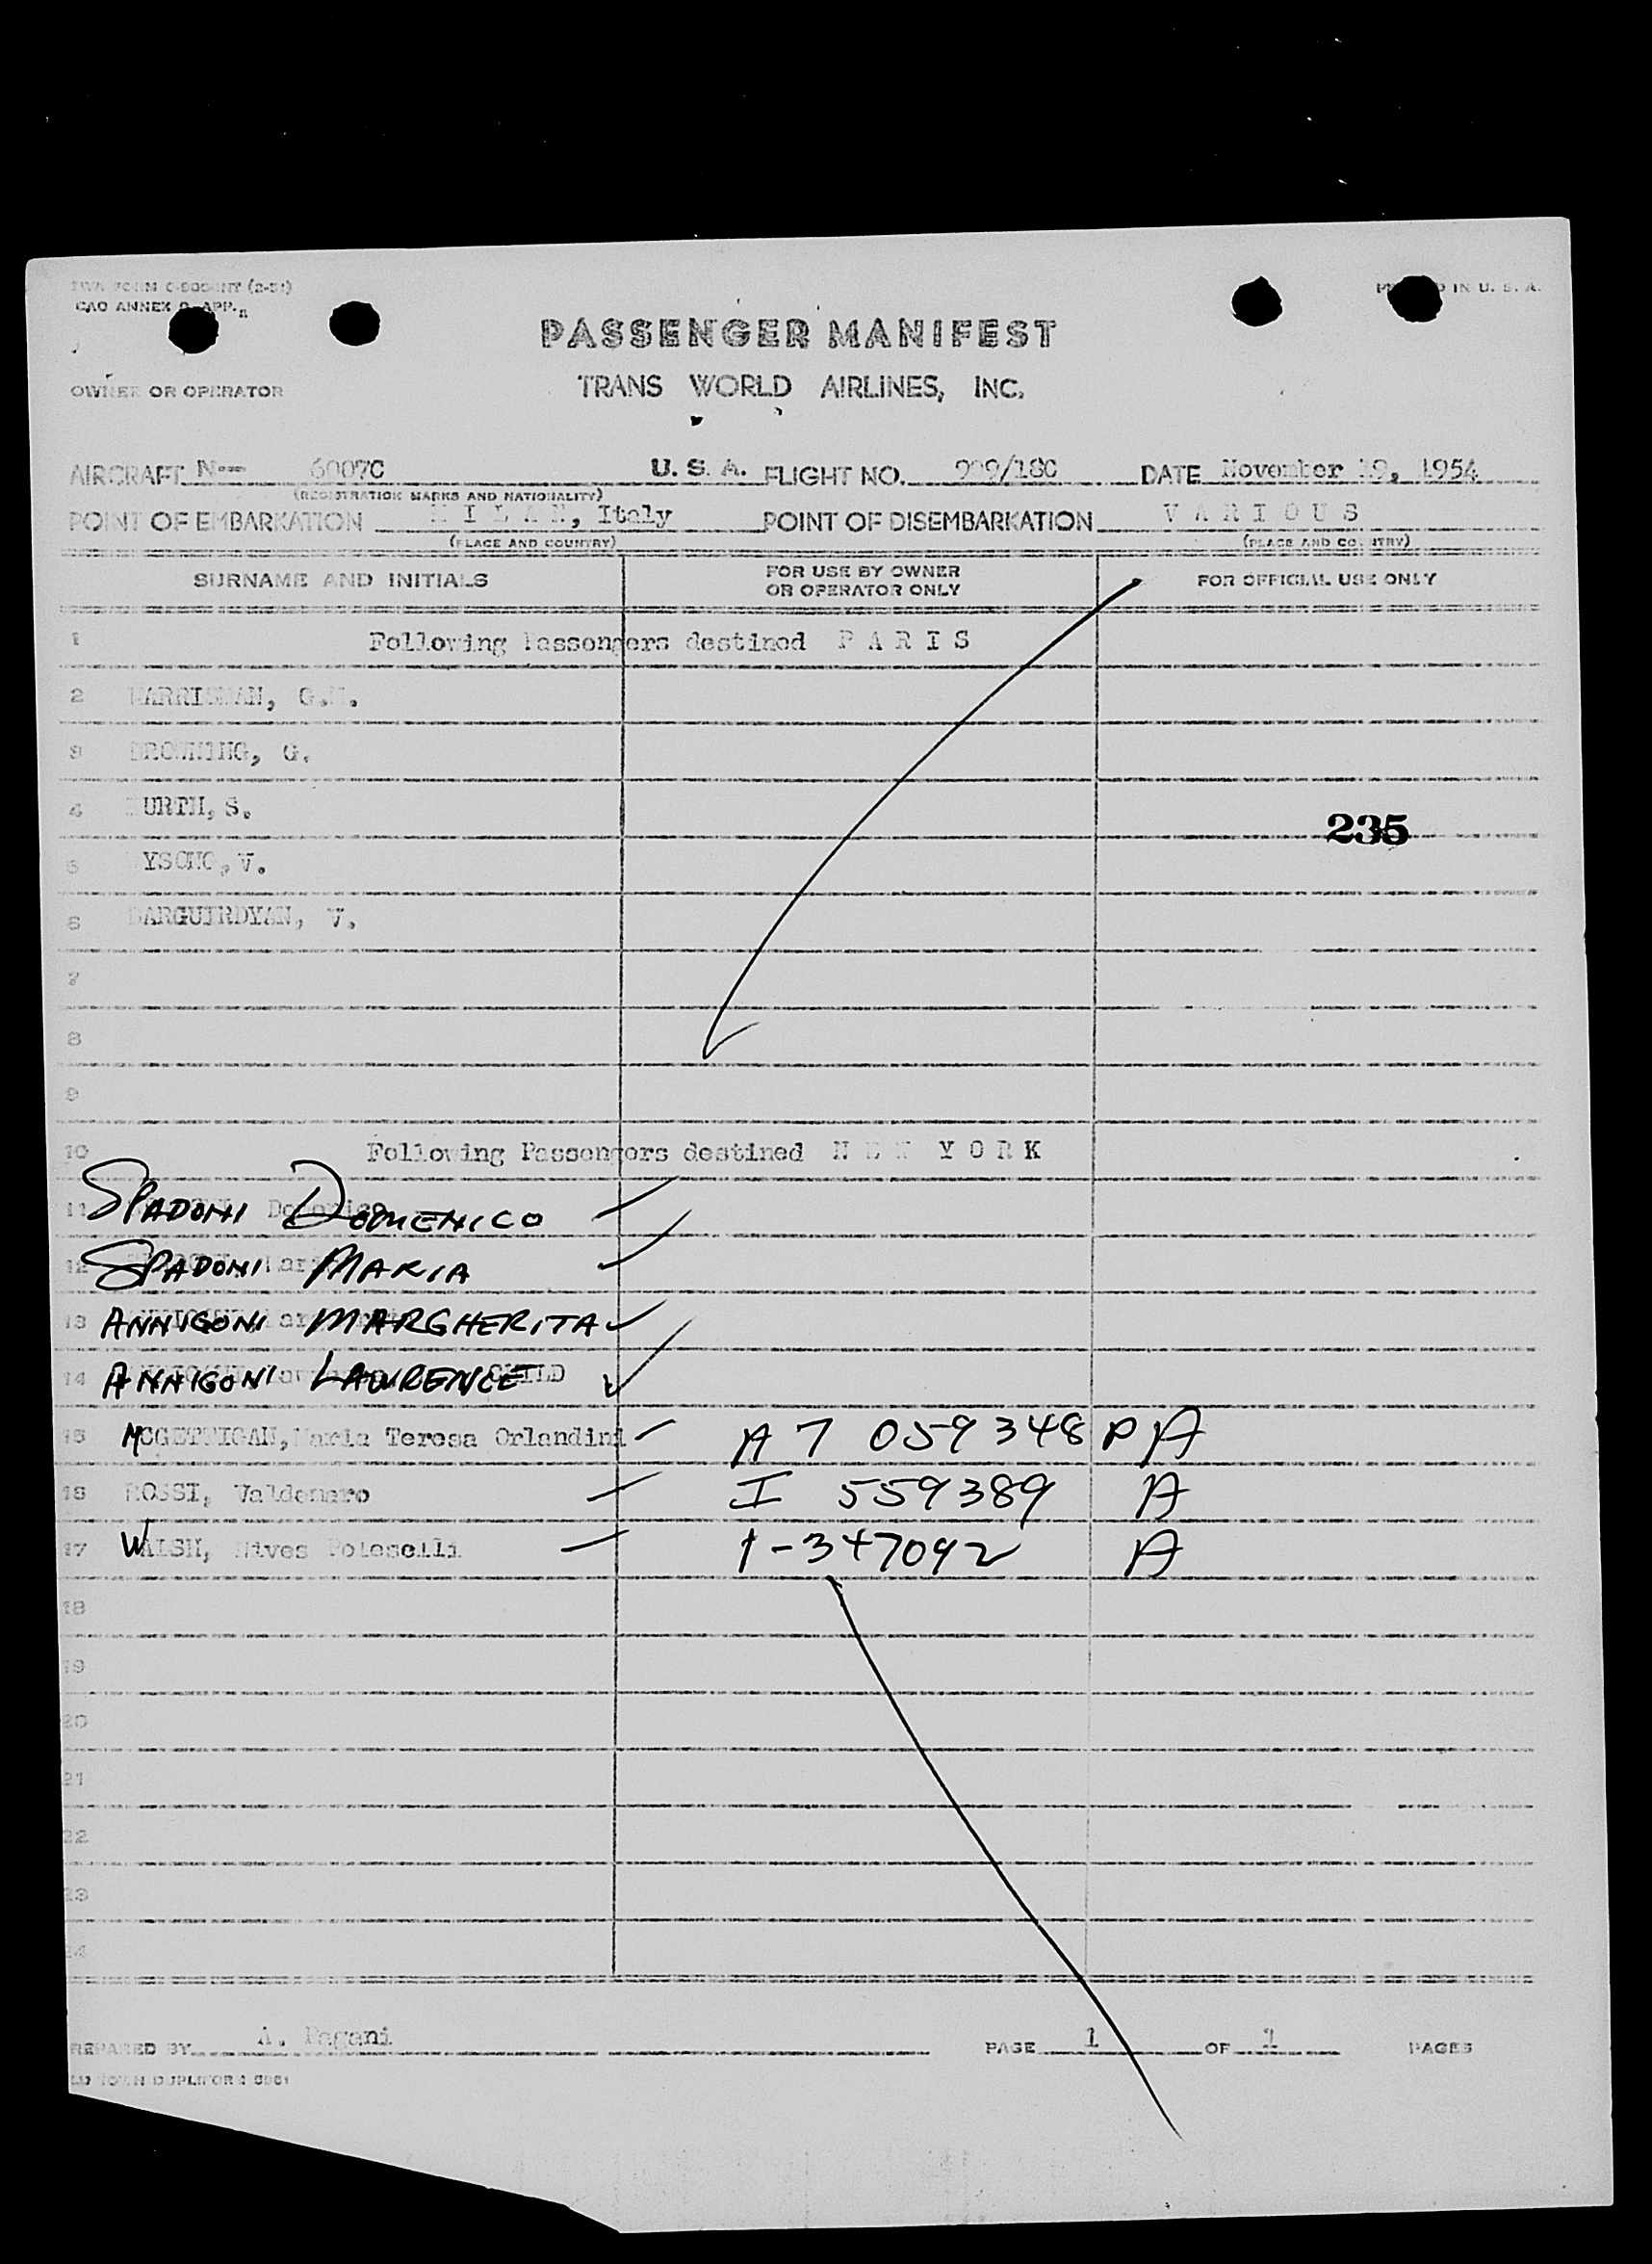 CAO ANNEX 9-APP.
IN U. S. A.
PASSENGER MANIFEST
OWNER OR OPERATOR TRANS WORLD AIRLINES, INC.
AIRCRAFT N-- 6007C U. S. A. FLIGHT NO. DATE November 19, 1954
(REGISTRATION MARKS AND NATIONALITY)
POINT OF EMBARKATION M I L A N, Italy POINT OF DISEMBARKATION V A R I O U S
(PLACE AND COUNTRY) (PLACE AND COUNTRY)
SURNAME AND INITIALS FOR USE BY OWNER OR OPERATOR ONLY FOR OFFICIAL USE ONLY
1 Following Passengers destined P A R I S
2
3 BROWNING, G.
4 S.
235
5 V.
6 V.
7
8
9
10 Following Passengers destined N E W Y O R K
11 SPADONI DOMENICO
12 SPADONI MARIA
13 ANNIGONI MARGHERITA
14 ANNIGONI LAWRENCE CHILD
15 MCGETTIGAN, Maria Teresa Orlandini A 7 059348 P A
16 ROSSI, Valdemaro I 559389 A
17 WALSH, Nives Poleselli 1-347092 A
18
19
20
21
22
23
24
PREPARED BY A. Pagani PAGE 1 OF PAGES